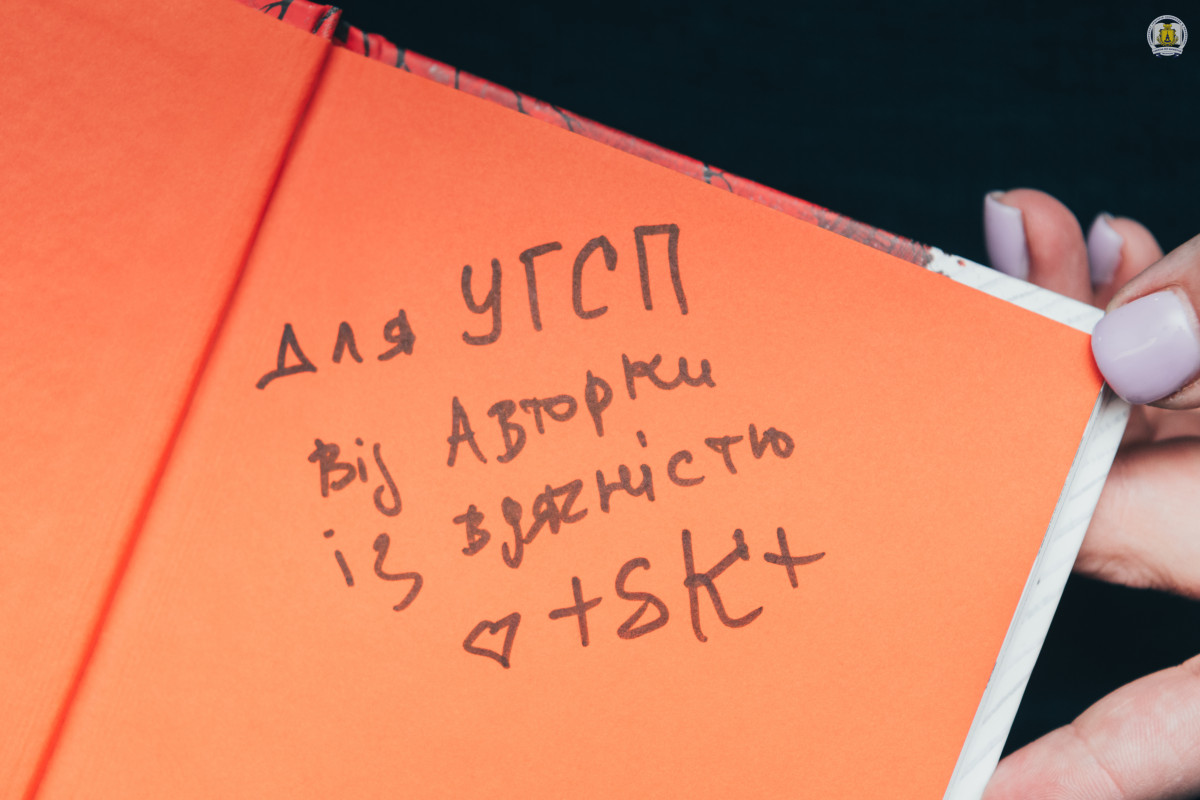 Для УГСП
від Авторки
із вдячністю
♡ +SK+